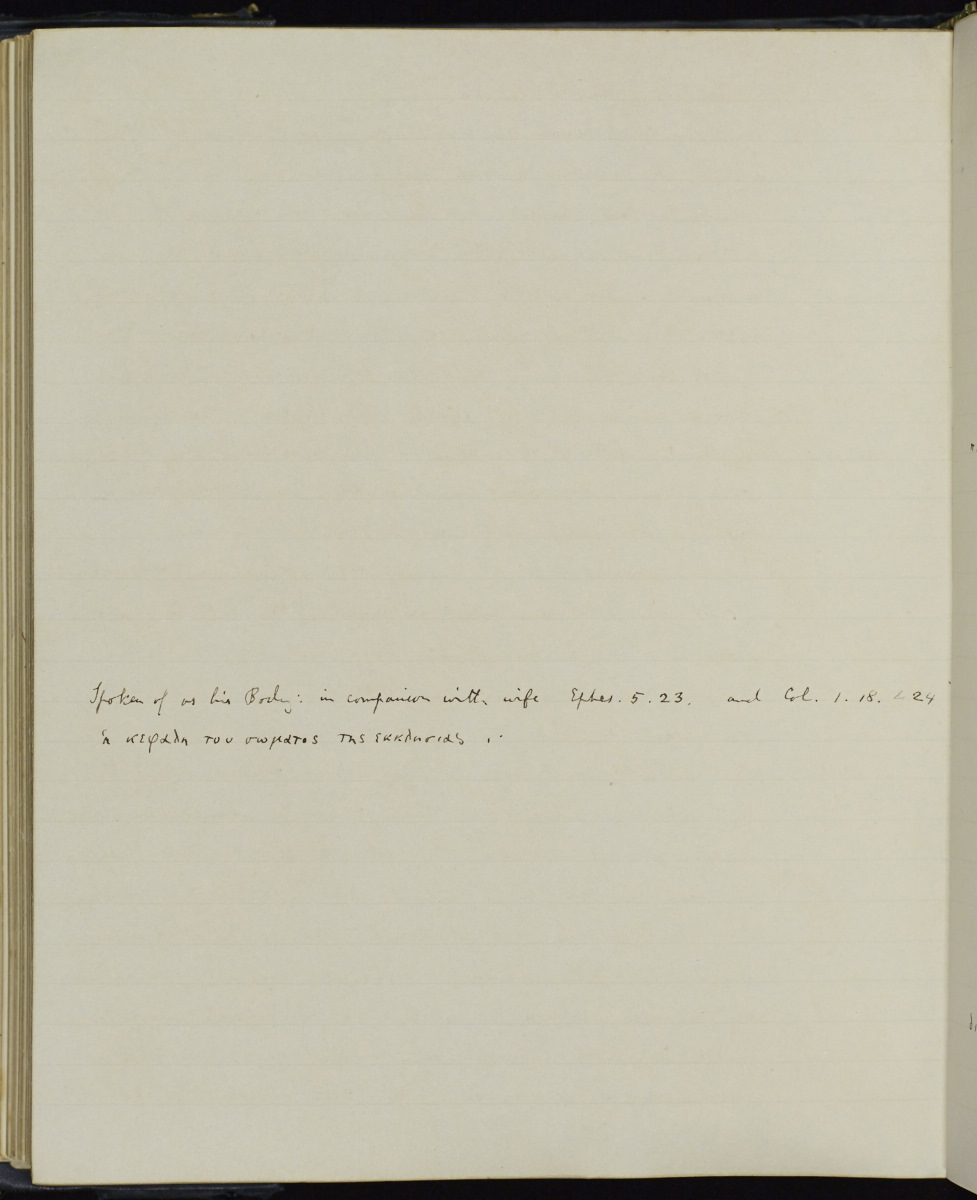 Spoken of as his Body: in comparison with wife Ephes. 5. 23. and Col. 1. 18. & 24
ἡ κεφαλη του σωματος της εκκλησιας